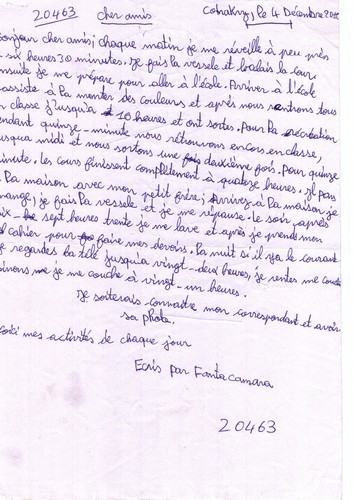 20463 cher amis Conakry, le 4 Décembre
onjour cher amis; chaque matin je me réveille à peu près
six heures 30 minutes. Je fais la vessele et balais la cour.
nsuite je me prépare pour aller à l'école. Arriver à l'école
assiste à la monter des couleurs et après nous rentrons tous
n classe j'usqu'a 10 heures et ont sortes. Pour la récréation
endant quinze-minute nous rétrouvons encors en classe,
usqua midi et nous sortons une deuxième fois. Pour quinze
inute. les cours finissent complètement à quatorze heures. Je pars
la maison avec mon petit frère; Arrivez à la maison je
mange, je fais la vessele et je me répause. Le soir après
ix - sept heures trente je me lave et après je prends mon
cahier pour faire mes devoirs. La nuit si il ya le courant
e regardes la télé jusqu'a vingt-deux heures, je rentes me couché
inons je me couche à vingt-un heures.
Je soiterais connaitre mon correspondant et avoir
sa photo.
oici mes activités de chaque jour
Ecris par Fanta camara
20463